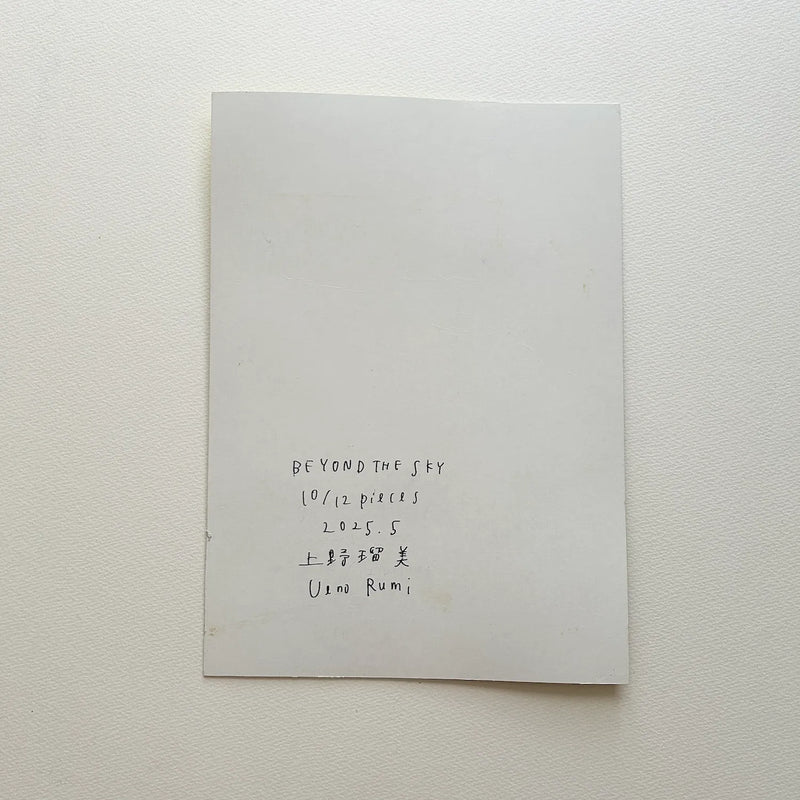 BEYOND THE SKY
10/12 pieces
2025.5
上野瑠美
Ueno Rumi